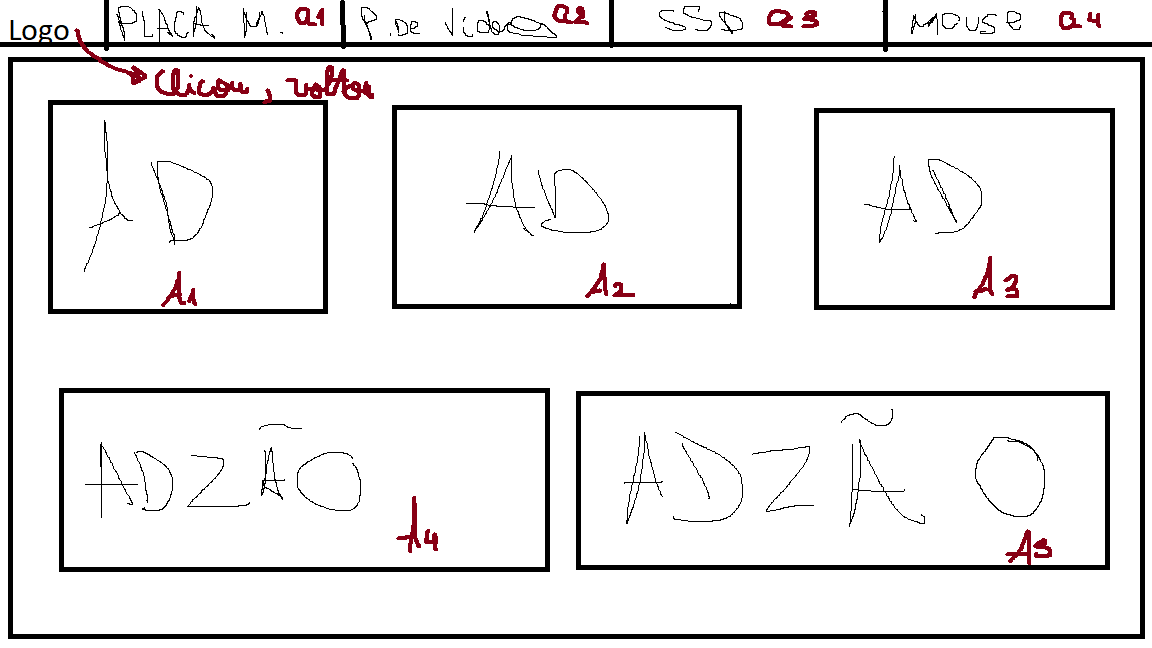 Logo PLACA M. a1 P. De Video a2 SSD a3 MOUSE a4
Clicou, voltou
AD AD AD
A1 A2 A3
ADZÃO ADZÃO
A4 A5